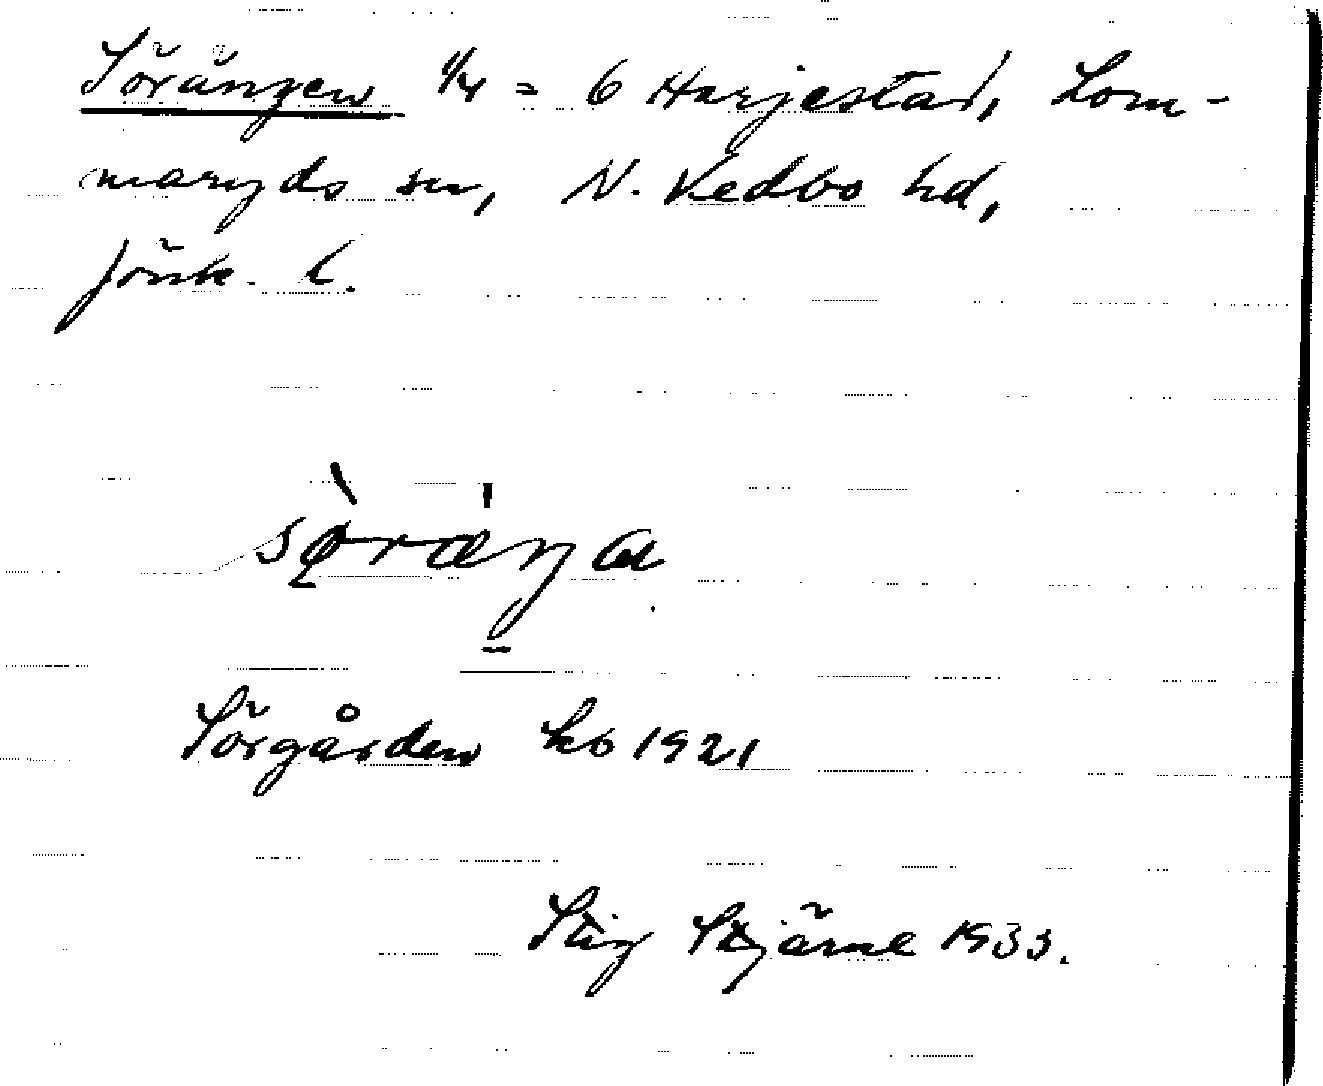 Sörängen 1/4 = 6 Harjestad, Lom-
maryds sn, N. Vedbo hd,
Jönk. l.
sø̀ræ̍ŋa
Sörgården kb 1921
Stig Stjärne 1933.